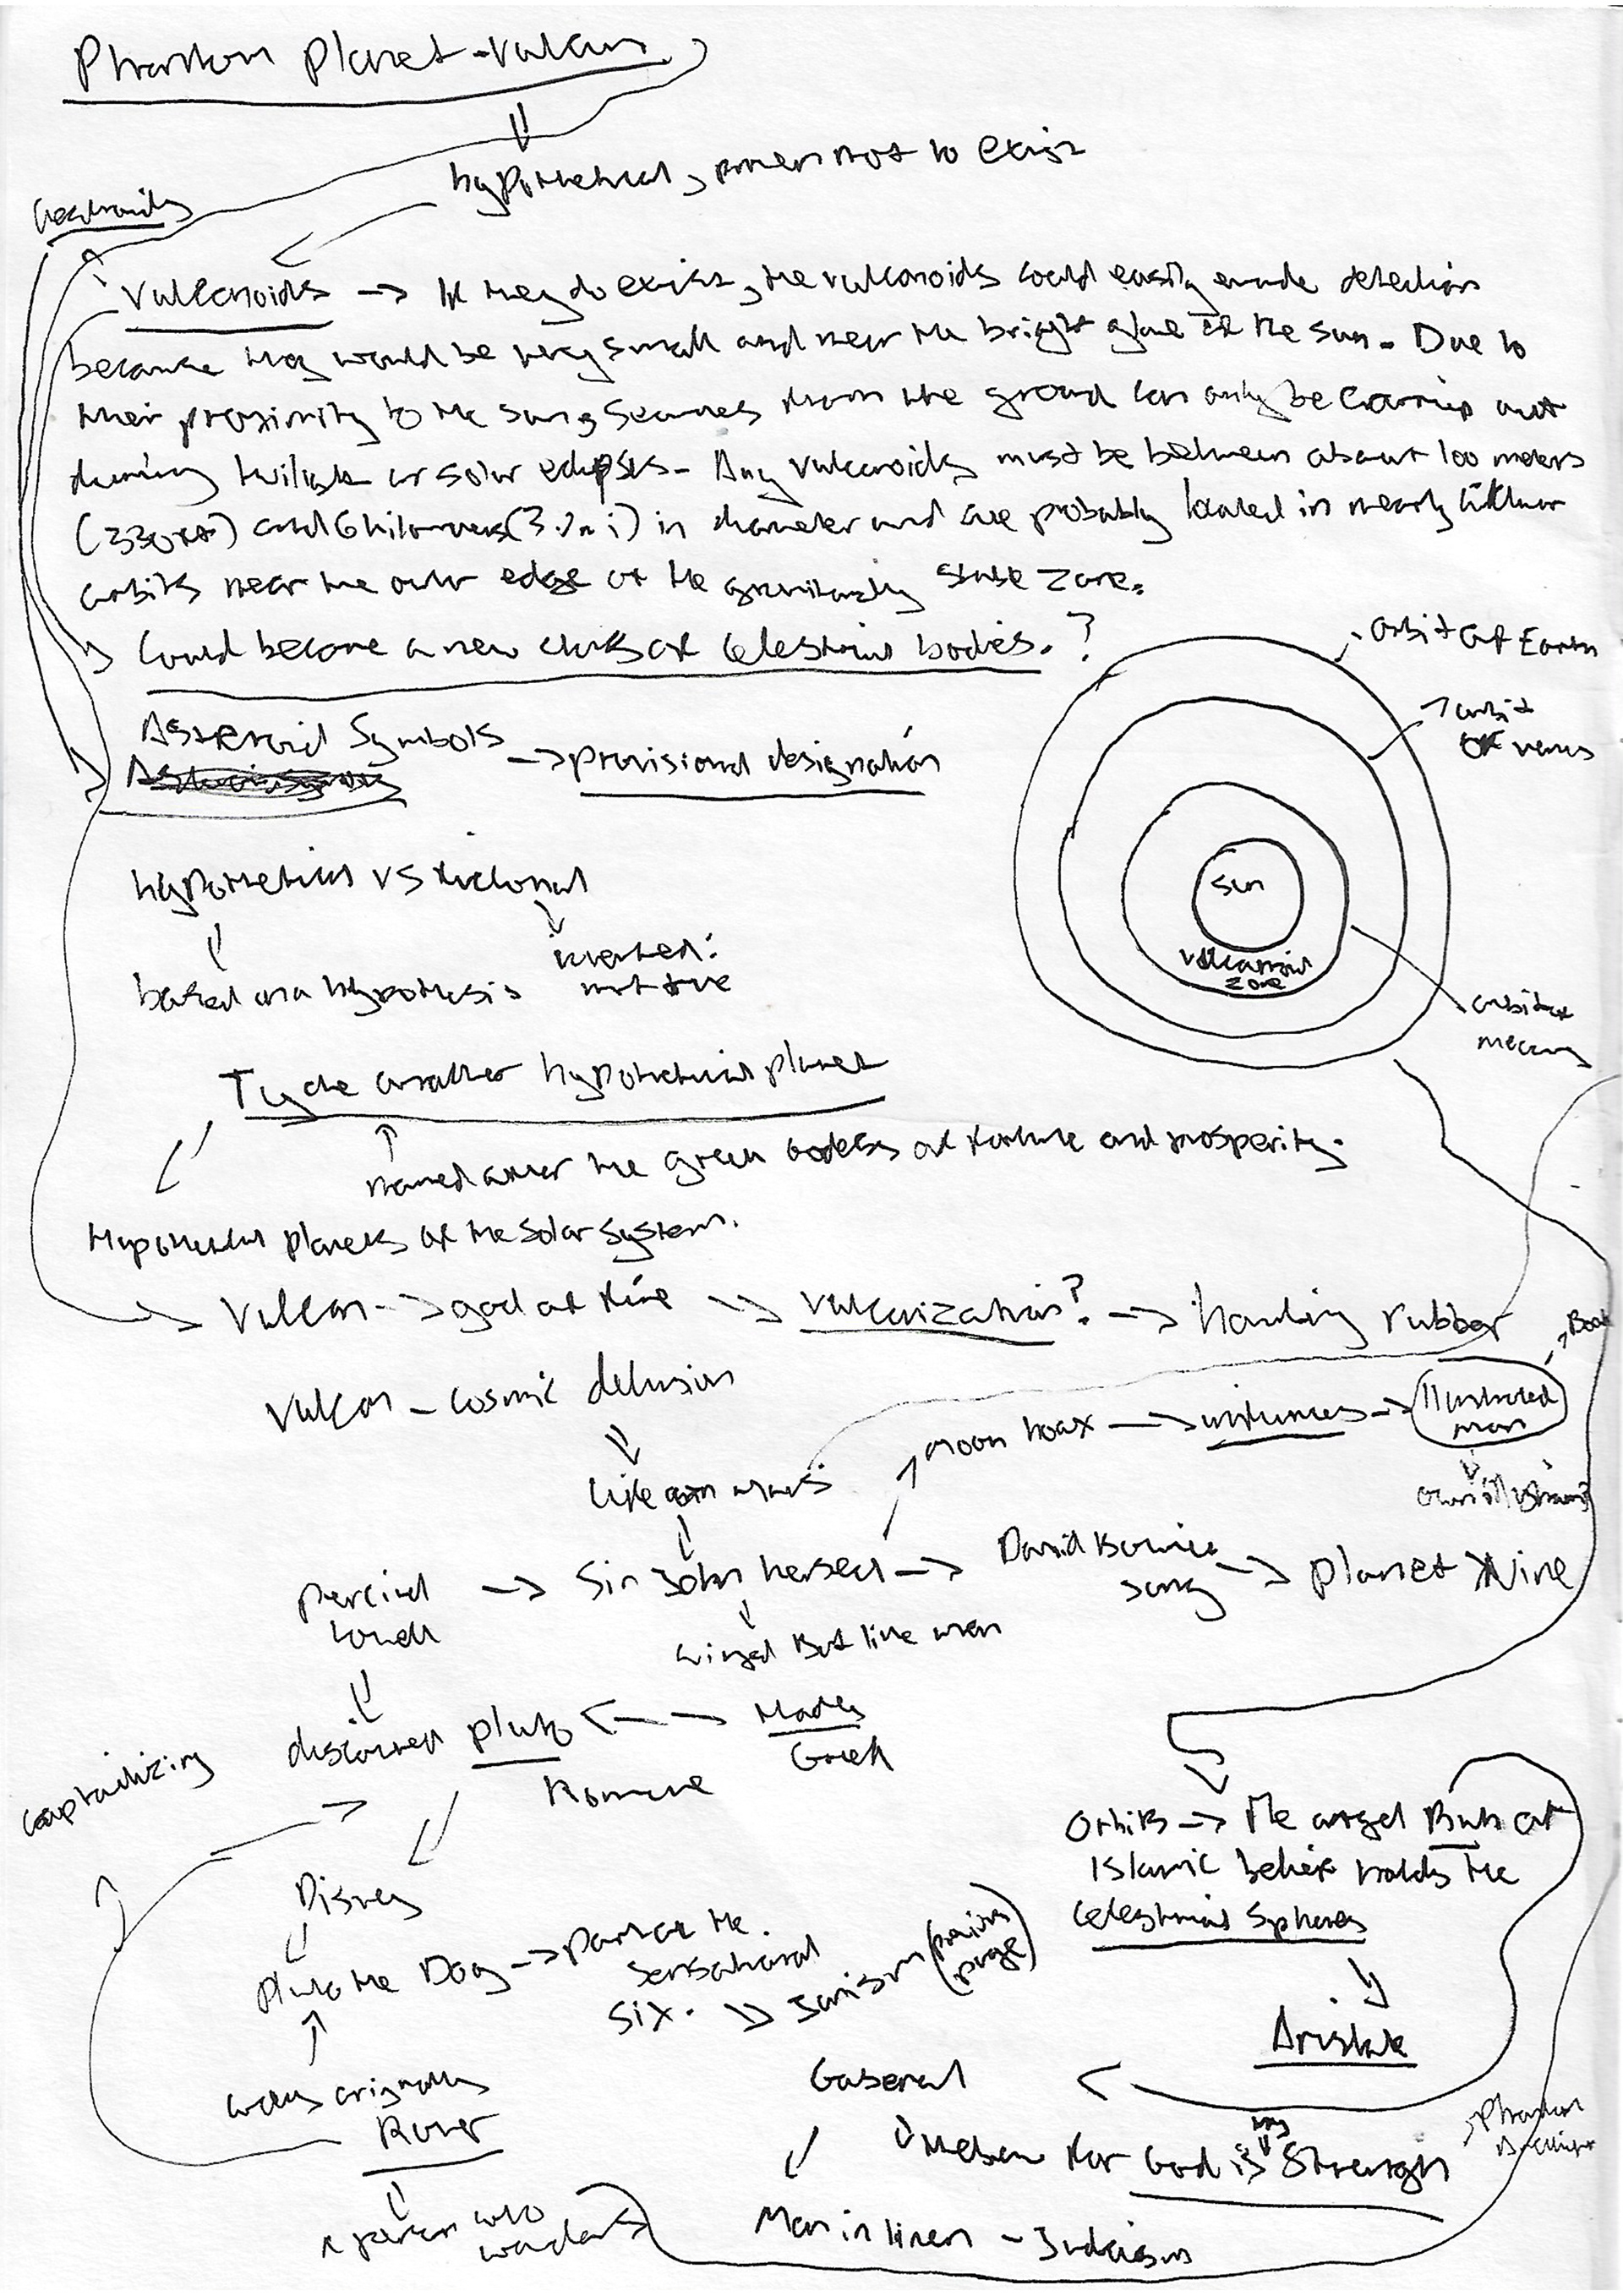 Phantom planet - Vulcan
hypothetical, proven not to exist
Vulcanoids → If they do exist, the vulcanoids could easily evade detection
because they would be very small and near the bright glare of the sun. Due to
their proximity to the sun, searches from the ground can only be carried out
during twilight or solar eclipses. Any vulcanoids must be between about 100 meters
(330ft) and 6 kilometers (3.7mi) in diameter and are probably located in nearly circular
orbits near the outer edge of the gravitationally stable zone.
Could become a new class of celestial bodies. ?
orbit of Earth
orbit
of venus
Asteroid Symbols → provisional designation
Sun
vulcanoid
zone
orbit of
mercury
hypothetical vs fictional
based on a hypothesis
invented:
not true
Tyche another hypothetical planet
named after the greek goddess of fortune and prosperity.
Hypothetical planets of the Solar System.
Vulcan → god of fire → vulcanization? → harding rubber
Book
Vulcan - cosmic delusion
moon hoax → influences → Illustrated
man
life on mars
Percival
Lowell
→ Sir John Hersch → David Bowie
song
→ planet Nine
winged Bat like men
discovered pluto ← → Hades
Greek
Romane
capitalizing
Orbits → The angel Ruh of
Islamic belief holds the
celestial spheres
Disney
Pluto the Dog → part of the
sensational
six. → Janism
Aristotle
was originally
Rover
Gaberal
Hebrew for God is my Strength
phantom
a person who
wanders
Man in linen - Judaism